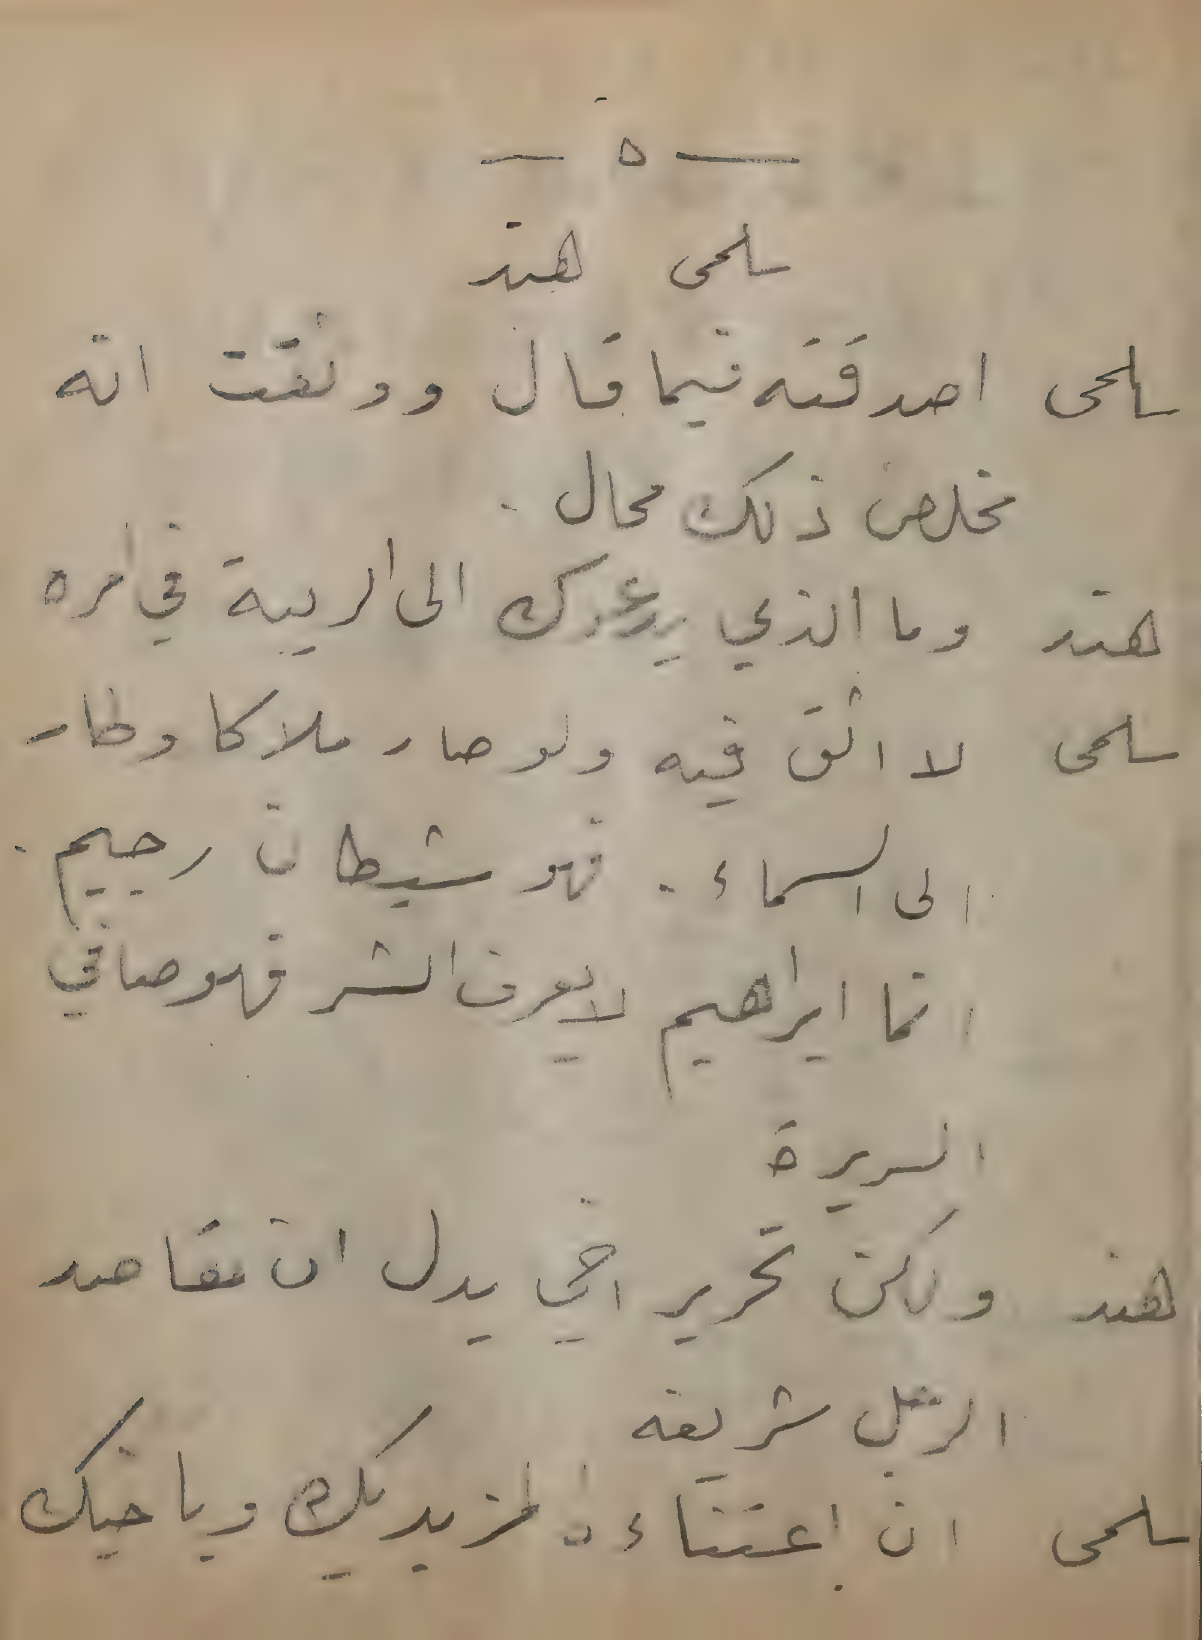 — ٥ —
سلمى هند
سلمى اصدقته فيما قال ووثقت انه
مخلص ذلك محال .
هند وما الذي يدعوك الى الريبة في امره
سلمى لا اثق فيه ولو صار ملاكا وطار
الى السماء . فهو شيطان رجيم .
انما ابراهيم لا يعرف الشر فهو صافي
السريرة
هند ولكن تحرير اخي يدل ان مقاصد
الرجل شريفه
سلمى ان اعتناءه المزيد بك وباخيك